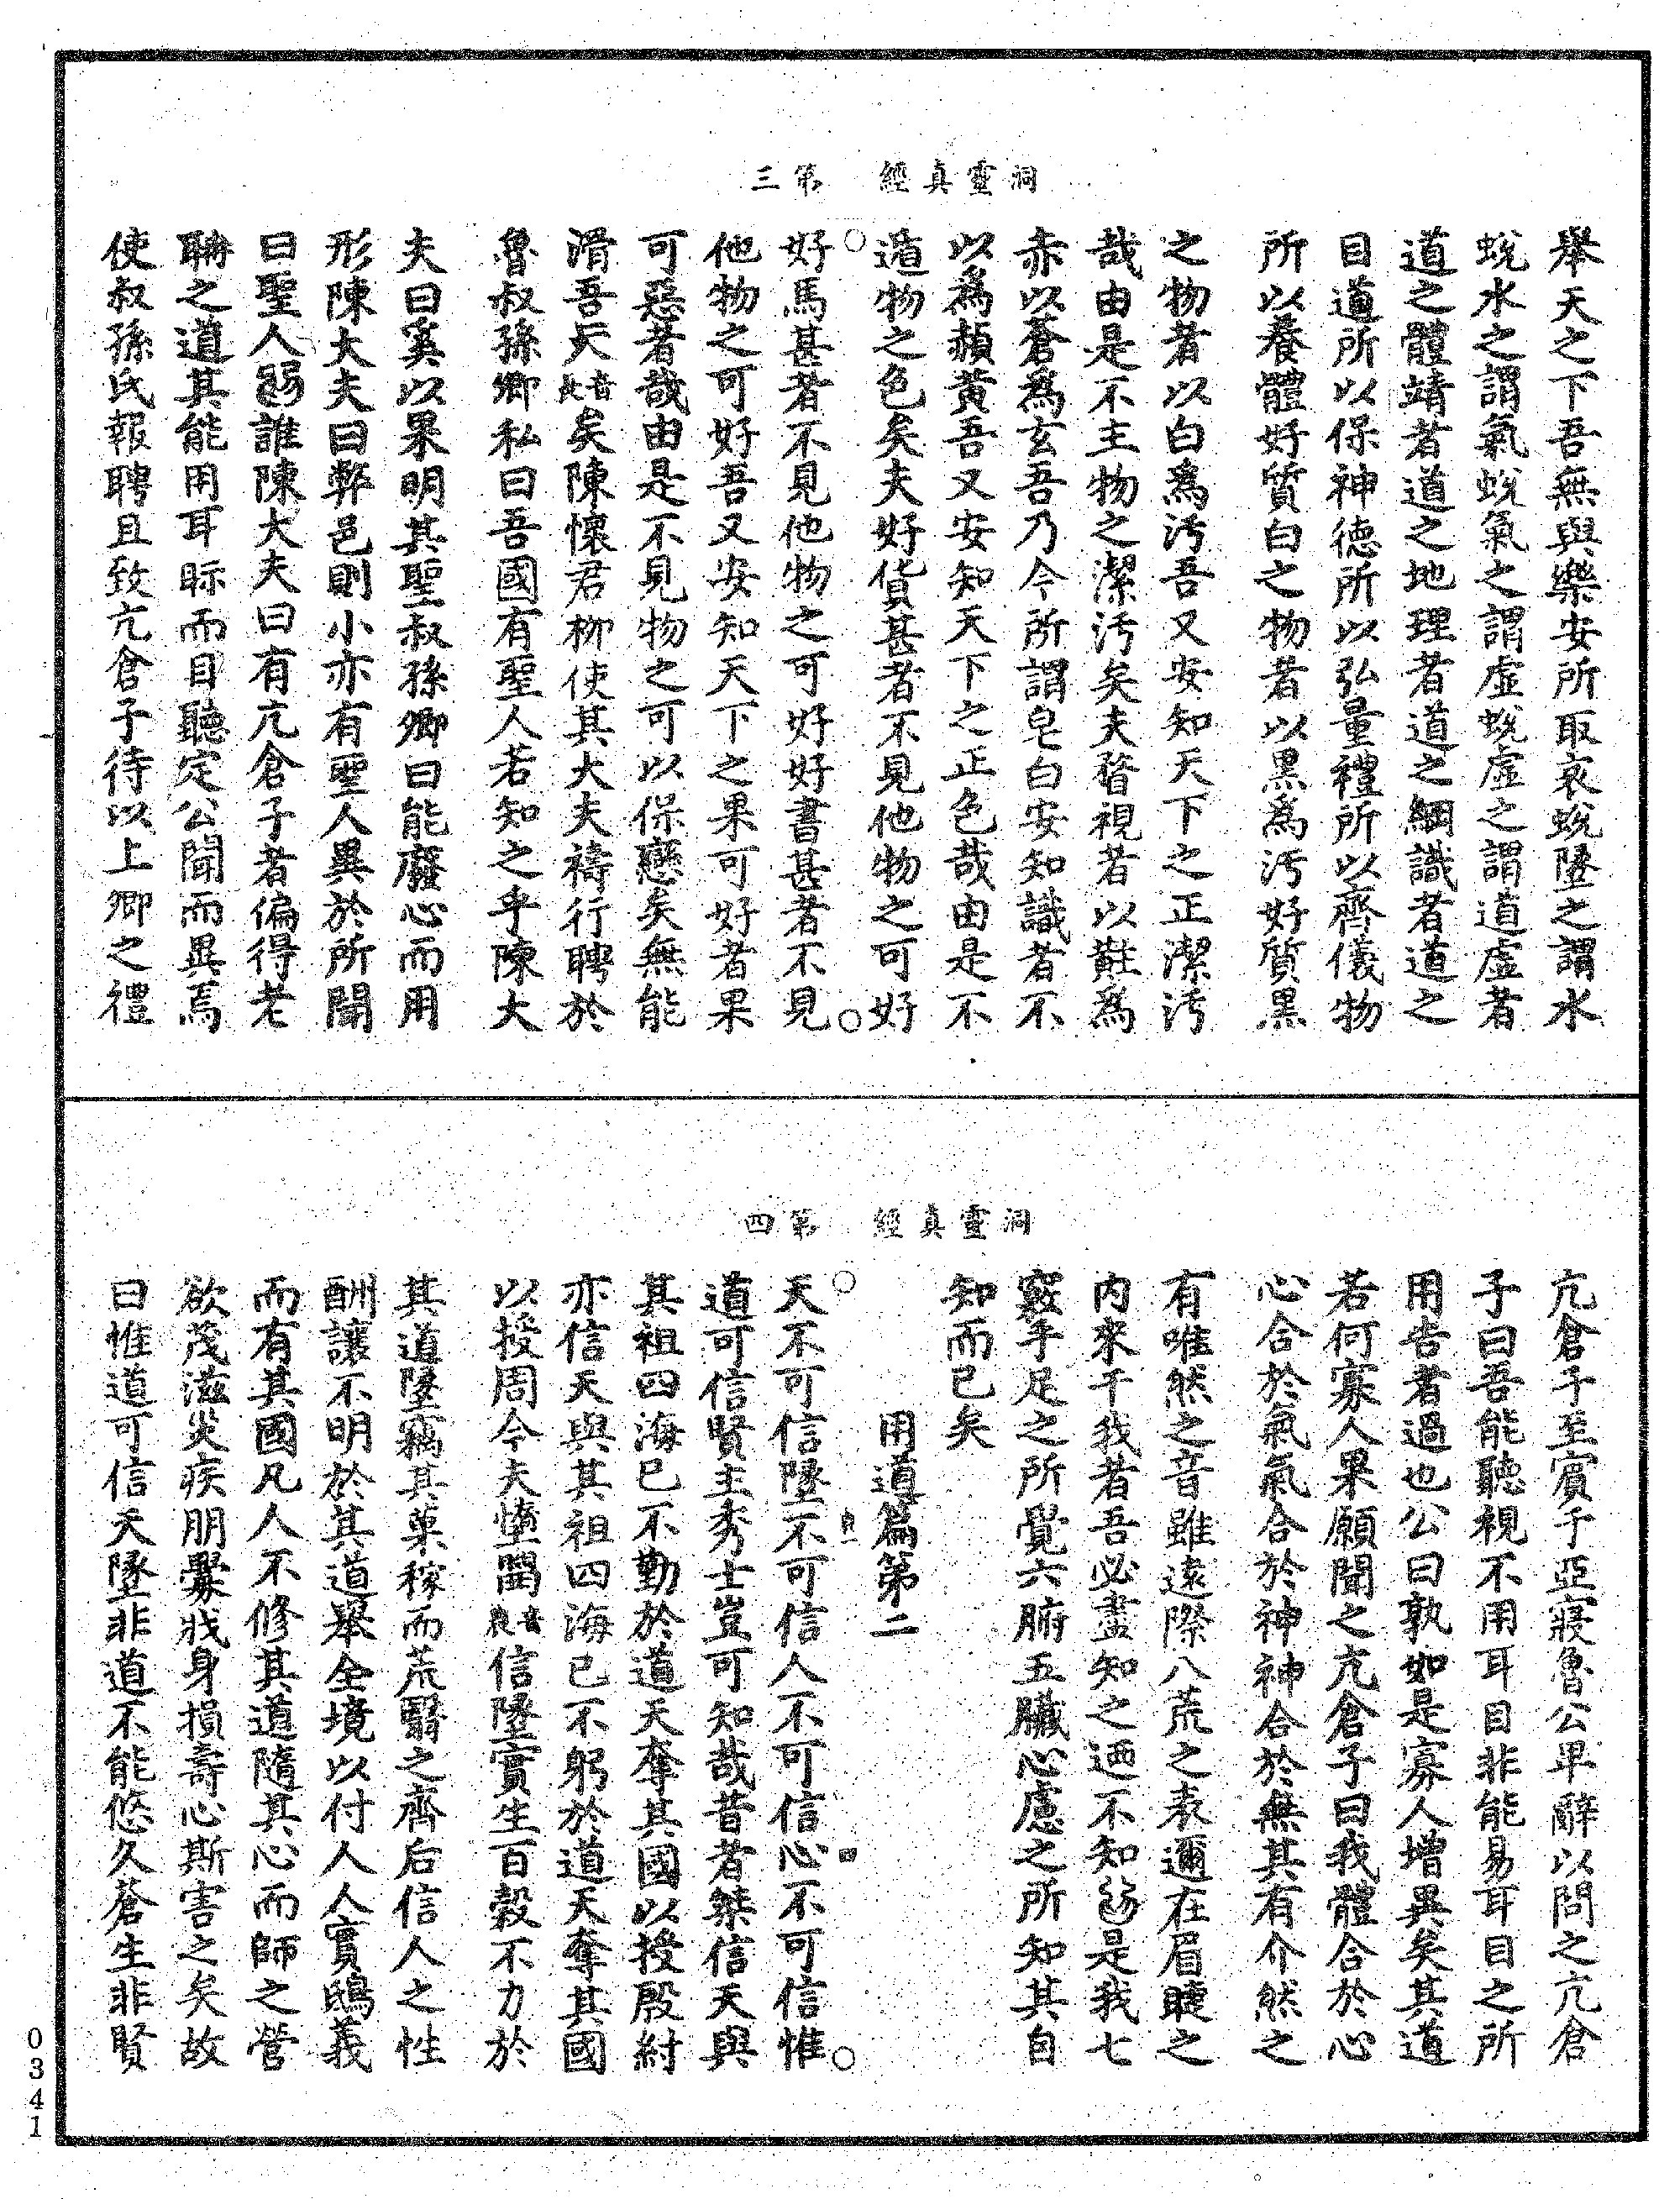 洞靈真經　第三
舉天之下吾無與樂安所取哀蛻墬之謂水
蛻水之謂氣蛻氣之謂虛蛻虛之謂道虛者
道之體靖者道之地理者道之綱識者道之
目道所以保神德所以弘量禮所以齊儀物
所以養體好質白之物者以黑為汚好質黑
之物者以白為汚吾又安知天下之正潔汚
哉由是不主物之潔汚矣夫瞀視者以黈為
赤以蒼為玄吾乃今所謂皂白安知識者不
以為頳黃吾又安知天下之正色哉由是不
遁物之色矣夫好貨甚者不見他物之可好
好馬甚者不見他物之可好好書甚者不見
他物之可好吾又安知天下之果可好者果
可惡者哉由是不見物之可以保戀矣無能
滑吾天音艮矣陳懷君栁使其大夫禱行聘於
魯叔孫卿私曰吾國有聖人若知之乎陳大
夫曰奚以果明其聖叔孫卿曰能廢心而用
形陳大夫曰弊邑則小亦有聖人異於所聞
曰聖人誰陳大夫曰有亢倉子者偏得老
聃之道其能用耳眎而目聽定公聞而異焉
使叔孫氏報聘且致亢倉子待以上卿之禮
洞靈真經　第四
亢倉子至賔于亞寢魯公卑辭以問之亢倉
子曰吾能聽視不用耳目非能易耳目之所
用告者過也公曰孰如是寡人增異矣其道
若何寡人果願聞之亢倉子曰我體合於心
心合於氣氣合於神神合於無其有介然之
有唯然之音雖遠際八荒之表邇在眉睫之
内來干我者吾必盡知之迺不知是我七
竅手足之所覺六腑五臟心慮之所知其自
知而已矣
用道篇第二
天不可信墬不可信人不可信心不可信惟
道可信賢主秀士豈可知哉昔者桀信天與
其祖四海已不勤於道天奪其國以授殷紂
亦信天與其祖四海已不躬於道天奪其國
以授周今夫墯音艮信墬實生百穀不力於
其道墬竊其菓稼而荒翳之齊后信人之性
酬讓不明於其道舉全境以付人人實鴟義
而有其國凡人不修其道隨其心而師之營
欲茂滋炎疾朋釁戕身損壽心斯害之矣故
曰惟道可信天墬非道不能悠久蒼生非賢
0341